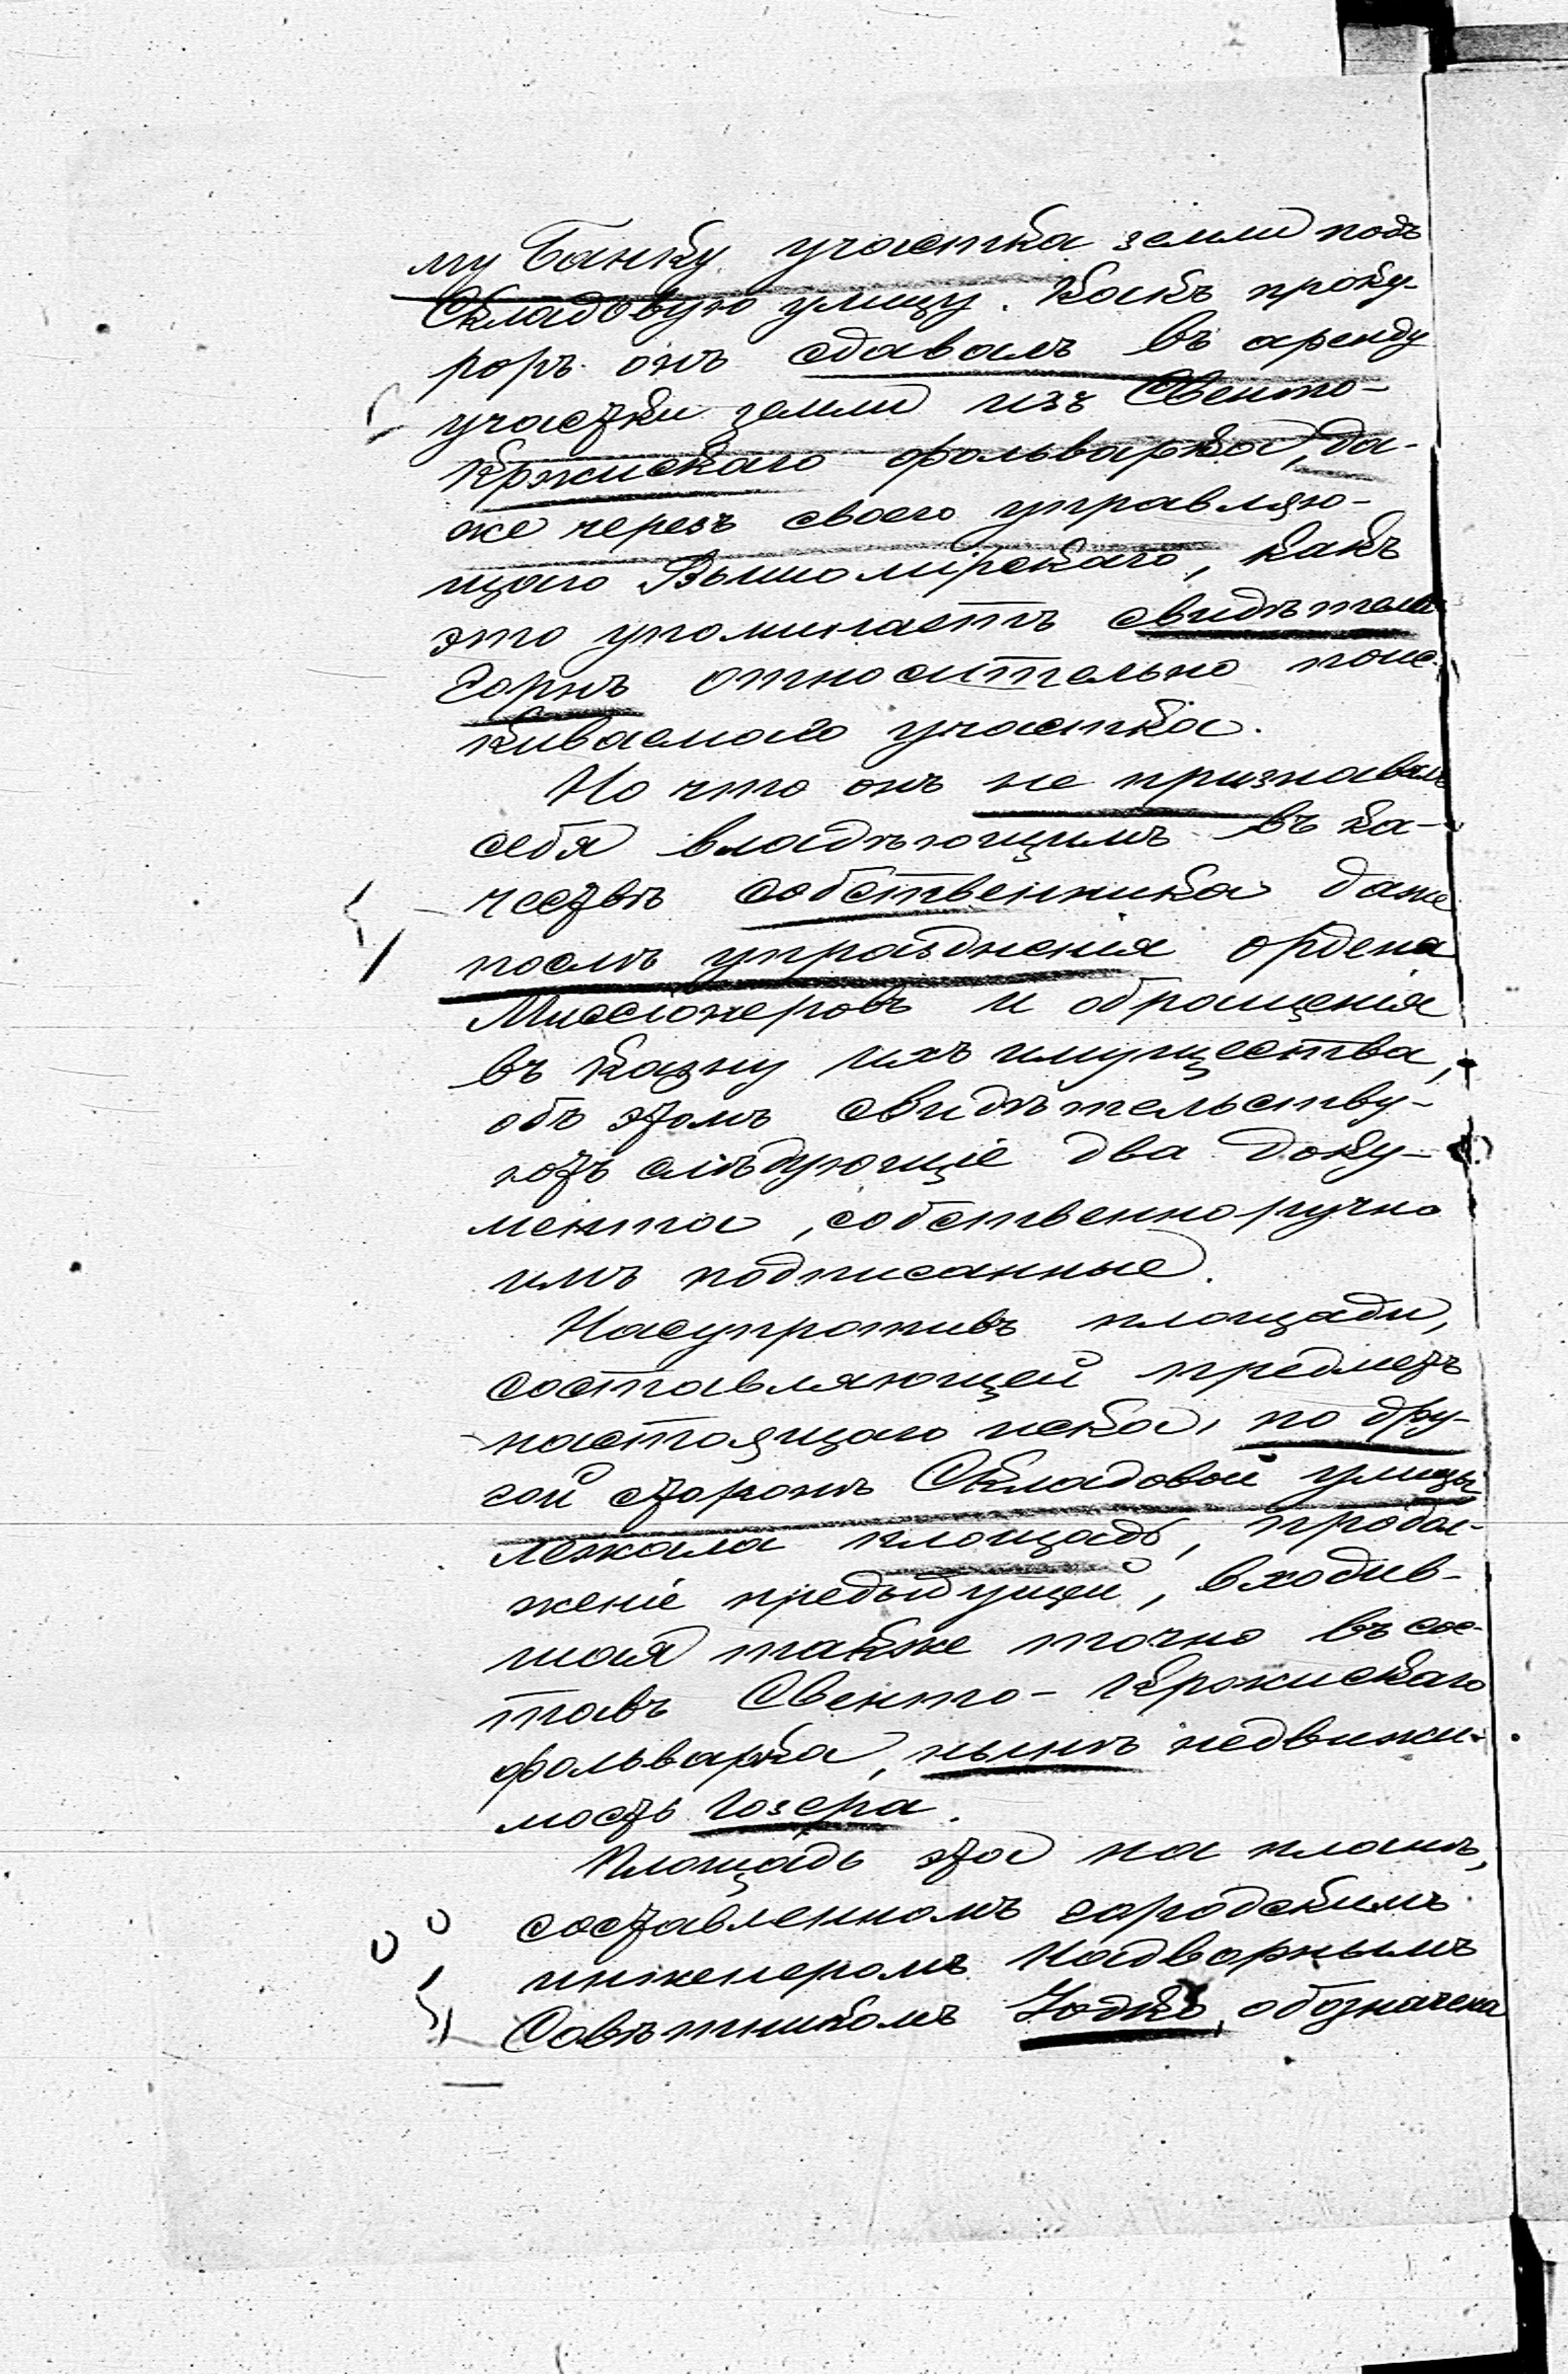 му Банку участка земли подъ
Складовую улицу. Какъ проку
роръ онъ сдавалъ въ аренду
участки земли изъ Свенто-
Кржискаго фольварка, да-
же черезъ своего управляю-
щаго Вышомірскаго, какъ
это упоминаетъ свидѣтель
Горнъ относительно поис-
киваемаго участка.
Но что онъ не признавалъ
себя владѣющимъ въ ка-
чествѣ собственника даже
послѣ упраздненія ордена
Миссіонеровъ и обращенія
въ казну ихъ имущества,
объ этомъ свидѣтельству-
ютъ слѣдующіе два доку-
мента, собственноручно
имъ подписанные.
Насупротивъ площади,
составляющей предметъ
настоящаго иска, по дру-
гой сторонѣ Складовой улицы
лежала площадь, продол-
женіе предыдущей, входив-
шая также точно въ сос-
тавъ Свенто-Кржискаго
фольварка, нынѣ недвижи-
мость Гозера.
Площадь эта на планѣ,
составленномъ городскимъ
инженеромъ Надворнымъ
Совѣтникомъ Юдко, обозначена